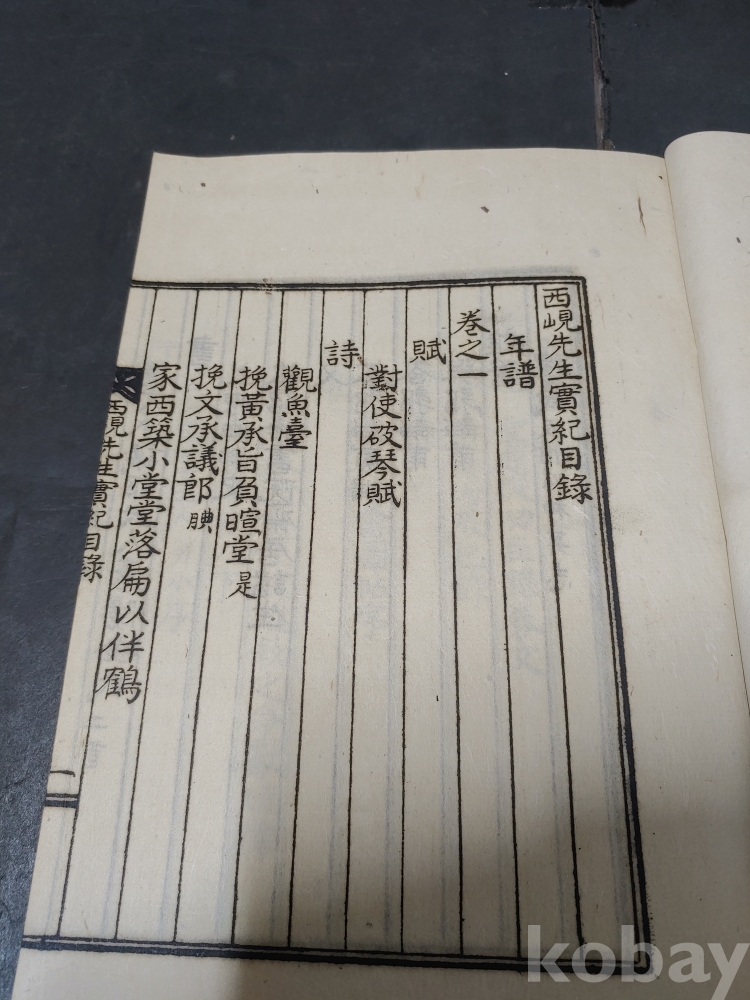 西峴先生實紀目錄
年譜
卷之一
賦
對使破琴賦
詩
觀魚臺
挽黃承旨負暄堂 是
挽文承議郎 腆
家西築小堂堂落扁以伴鶴
西峴先生實紀目錄
一
kobay